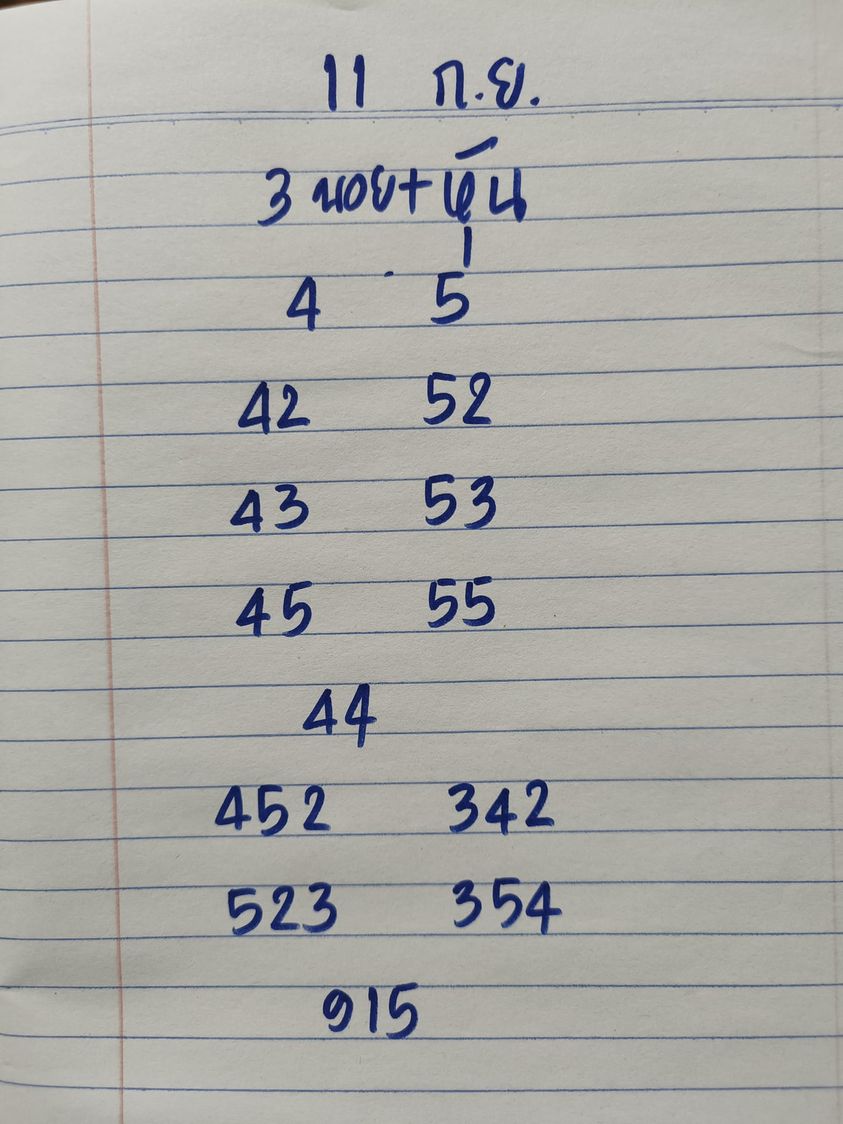 11 ก.ย.
3 นอย+หุ้น
4 5
42 52
43 53
45 55
44
452 342
523 354
915